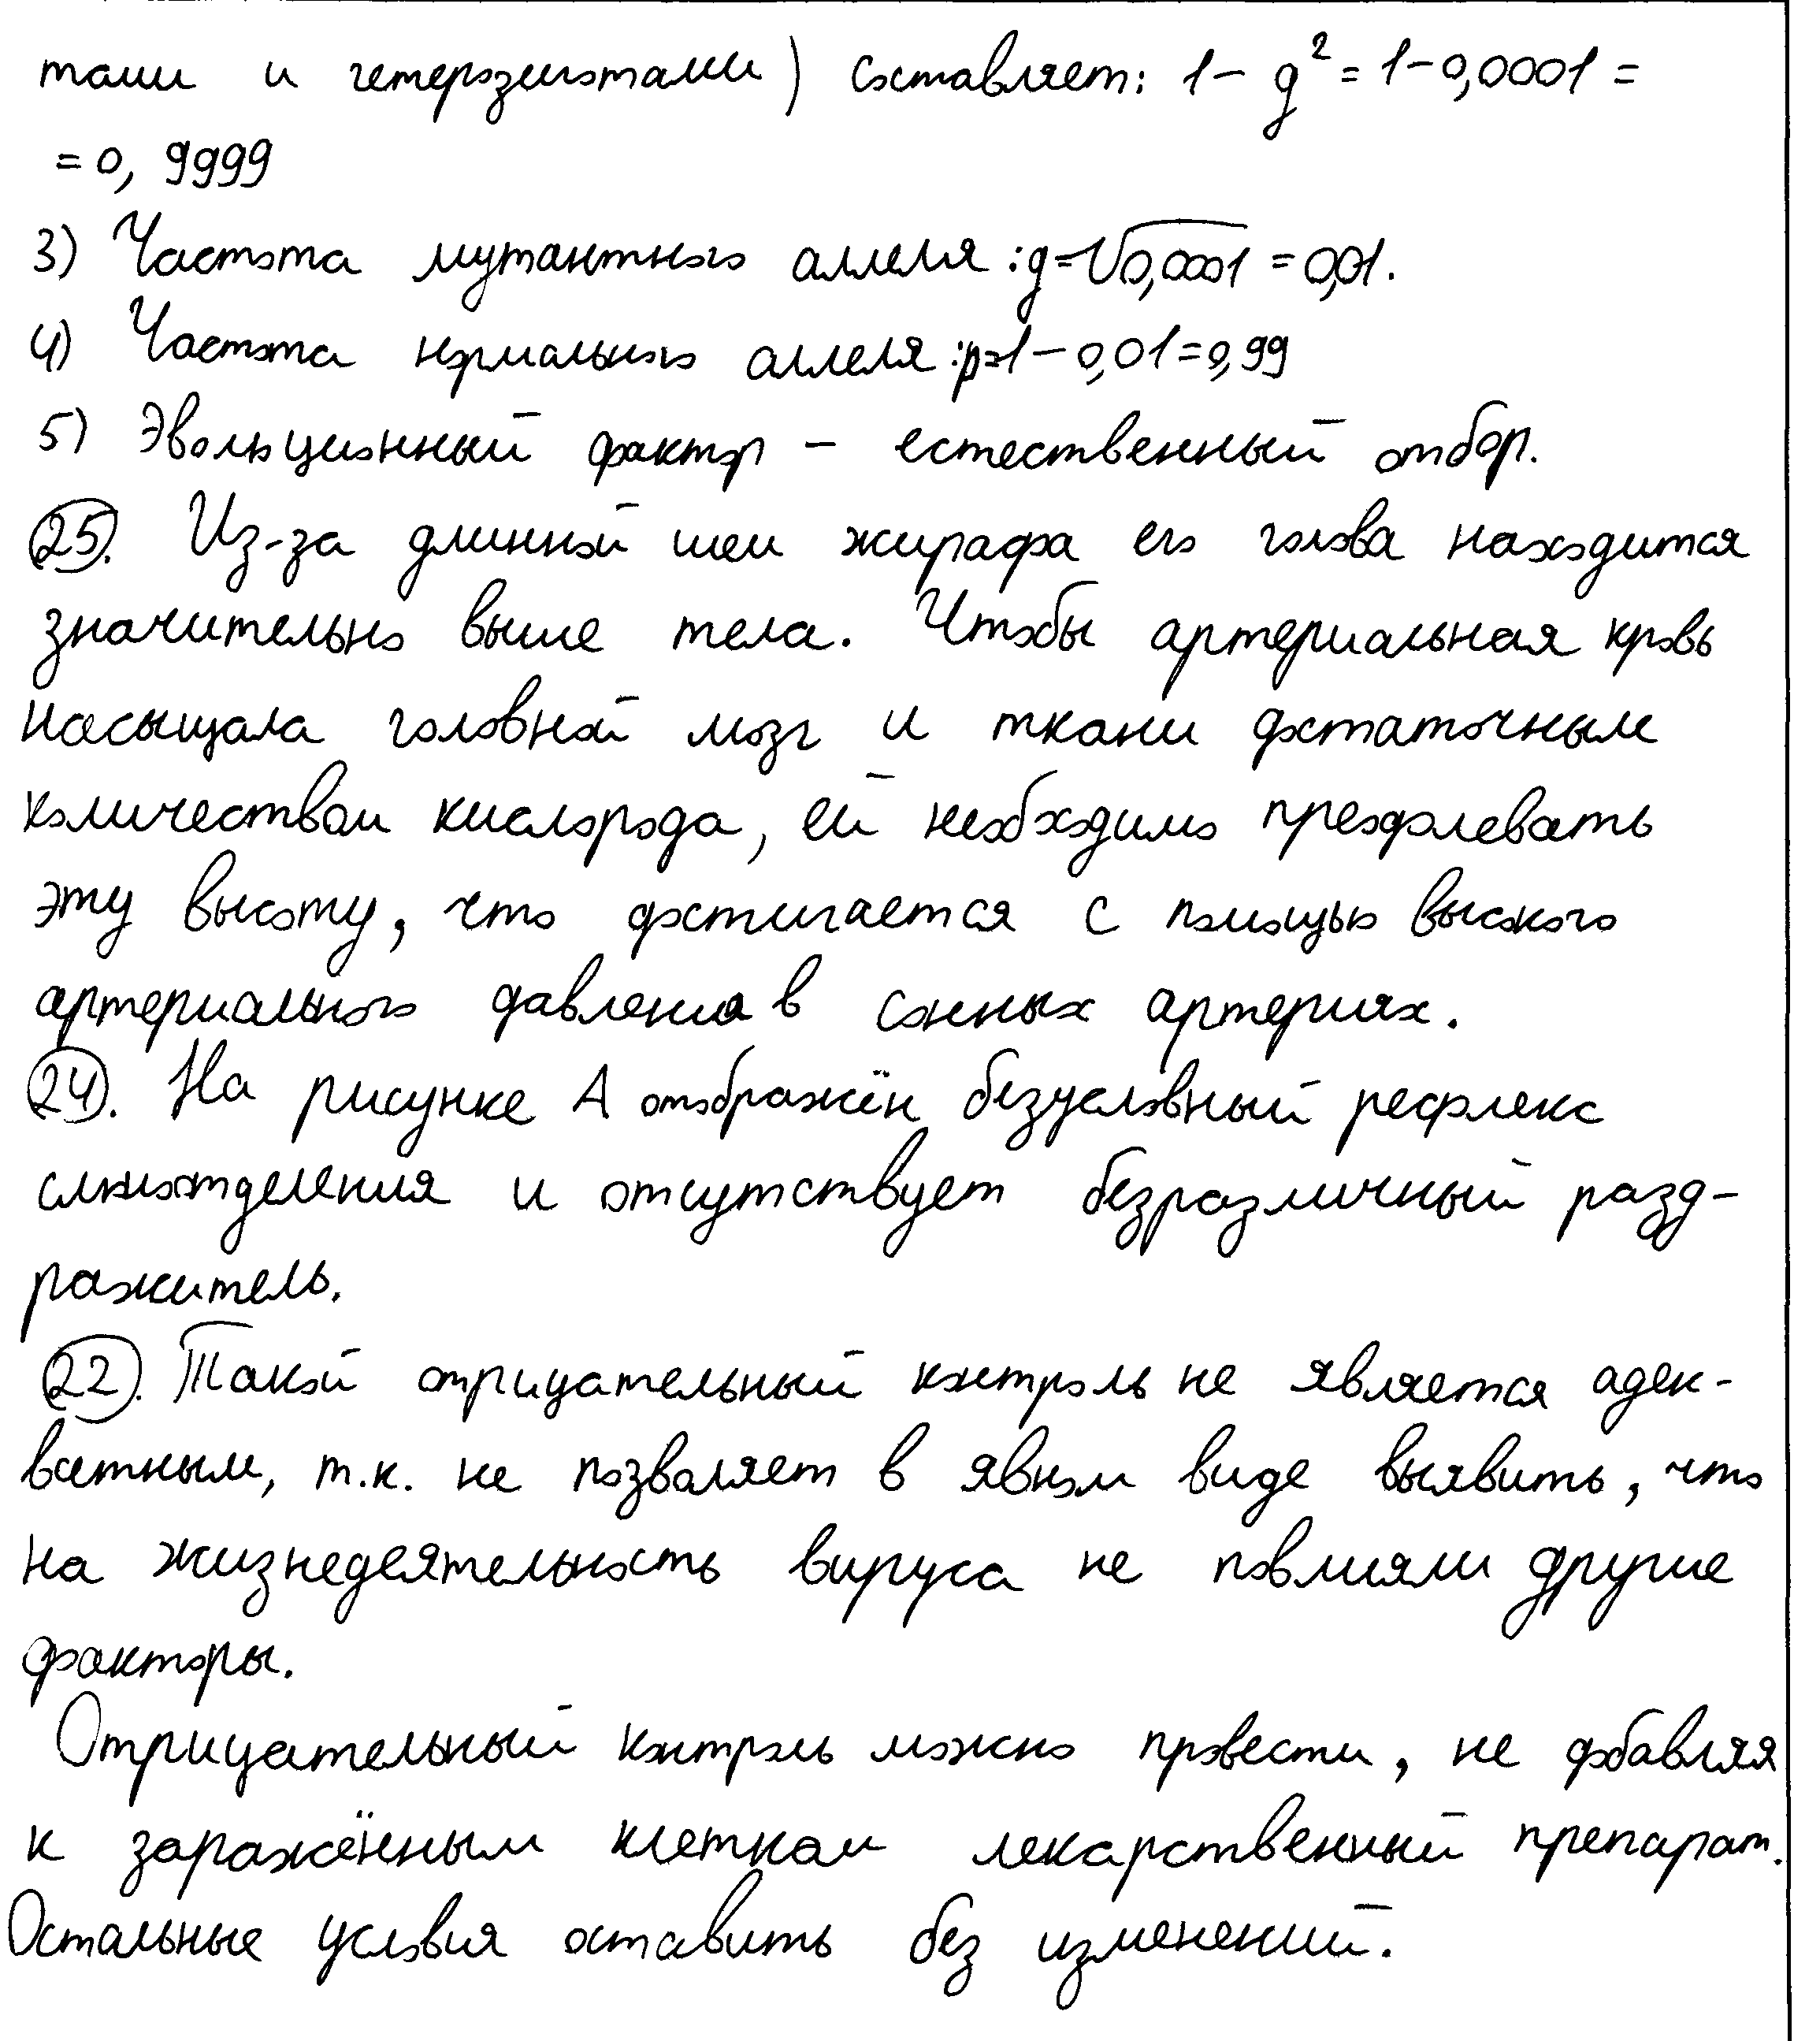 тами и гетерозиготами) составляет: 1 - q² = 1 - 0,0001 =
= 0, 9999
3) Частота мутантного аллеля : q = √0,0001 = 0,01.
4) Частота нормального аллеля : p = 1 - 0,01 = 0,99
5) Эвольционный фактор - естественный отбор.
25. Из-за длинной шеи жирафа его голова находится
значительно выше тела. Чтобы артериальная кровь
насыщала головной мозг и ткани достаточным
количеством кислорода, ей необходимо преодолевать
эту высоту, что достигается с помощью высокого
артериального давления в сонных артериях.
24. На рисунке А отображён безусловный рефлекс
слюноотделения и отсутствует безразличный разд-
ражитель.
22. Такой отрицательный контроль не является адек-
ватным, т.к. не позволяет в явном виде выявить, что
на жизнедеятельность вируса не повлияли другие
факторы.
Отрицательный контроль можно провести, не добавляя
к заражённым клеткам лекарственный препарат.
Остальные условия оставить без изменений.